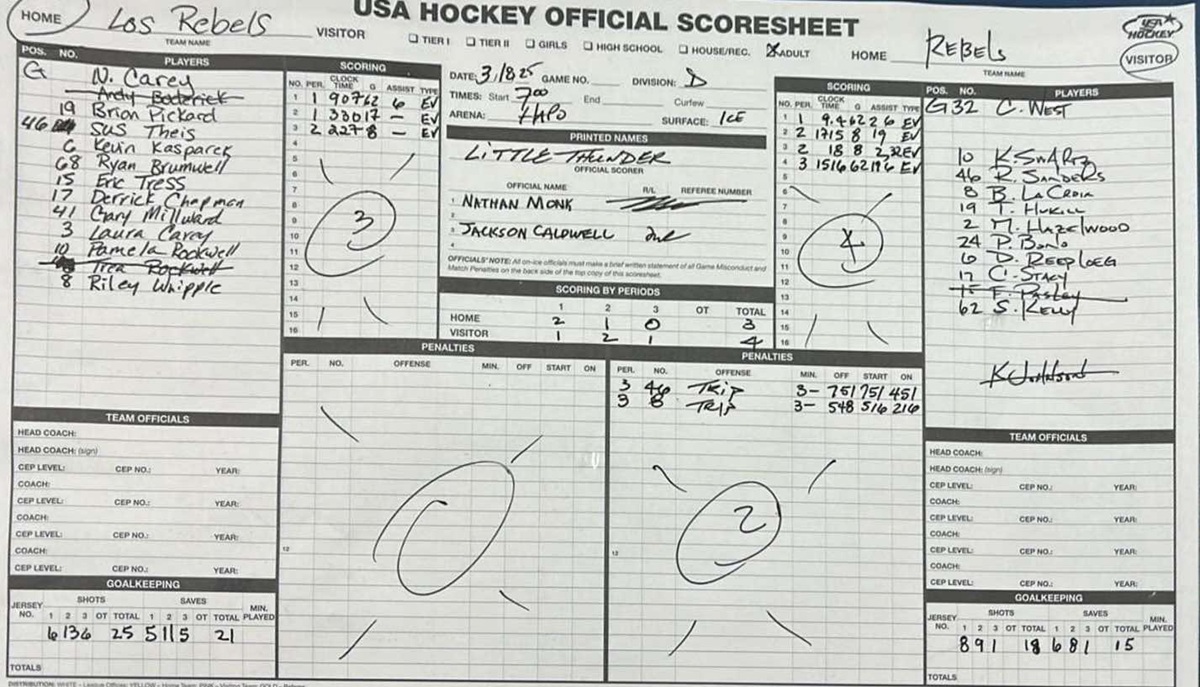 USA HOCKEY OFFICIAL SCORESHEET
HOME Los Rebels VISITOR
TEAM NAME
☐ TIER I ☐ TIER II ☐ GIRLS ☐ HIGH SCHOOL ☐ HOUSE/REC. ☒ ADULT
HOME REBELS VISITOR
TEAM NAME
USA HOCKEY
POS. NO. PLAYERS
G N. Carey
Andy Boderick
19 Brian Pickard
46 Sus Theis
6 Kevin Kasparek
68 Ryan Brumwell
15 Eric Tress
17 Derrick Chapman
41 Gary Millward
3 Laura Carey
10 Pamela Rockwell
Trea Rockwell
8 Riley Whipple
SCORING
NO. PER. CLOCK TIME G ASSIST TYPE
1 1 907 62 6 EV
2 1 330 17 - EV
3 2 227 8 - EV
4
5
6
7
8
9
10
11
12
13
14
15
16
3
DATE: 3/8/25 GAME NO. DIVISION: D
TIMES: Start 700 End Curfew
ARENA: HAPO SURFACE: ICE
PRINTED NAMES
LITTLE THUNDER
OFFICIAL SCORER
OFFICIAL NAME R/L REFEREE NUMBER
1 NATHAN MONK
2
3 JACKSON CALDWELL
4
OFFICIALS' NOTE: All on-ice officials must make a brief written statement of all Game Misconduct and
Match Penalties on the back side of the top copy of this scoresheet.
SCORING BY PERIODS
1 2 3 OT TOTAL
HOME 2 1 0 3
VISITOR 1 2 1 4
SCORING
NO. PER. CLOCK TIME G ASSIST TYPE
1 1 9.4 62 2 6 EV
2 2 1715 8 19 EV
3 2 18 8 2,32 EV
4 3 1516 62 19 6 EV
5
6
7
8
9
10
11
12
13
14
15
16
4
POS. NO. PLAYERS
G 32 C. WEST
10 K. SWARTZ
46 R. SANDERS
8 B. LA CROIX
19 T. HUKILL
2 M. HAZELWOOD
24 P. BOND
6 D. REEPLOEG
17 C. STACY
15 F. Pasley
62 S. KELLY
PENALTIES
PER. NO. OFFENSE MIN. OFF START ON
12
0
PENALTIES
PER. NO. OFFENSE MIN. OFF START ON
3 46 TRIP 3- 751 751 451
3 8 TRIP 3- 548 516 216
12
2
TEAM OFFICIALS
HEAD COACH:
HEAD COACH: (sign)
CEP LEVEL: CEP NO.: YEAR:
COACH:
CEP LEVEL: CEP NO.: YEAR:
COACH:
CEP LEVEL: CEP NO.: YEAR:
COACH:
CEP LEVEL: CEP NO.: YEAR:
GOALKEEPING
JERSEY NO. SHOTS SAVES MIN. PLAYED
1 2 3 OT TOTAL 1 2 3 OT TOTAL
6 13 6 25 5 11 5 21
TOTALS
TEAM OFFICIALS
HEAD COACH:
HEAD COACH: (sign)
CEP LEVEL: CEP NO.: YEAR:
COACH:
CEP LEVEL: CEP NO.: YEAR:
COACH:
CEP LEVEL: CEP NO.: YEAR:
COACH:
CEP LEVEL: CEP NO.: YEAR:
GOALKEEPING
JERSEY NO. SHOTS SAVES MIN. PLAYED
1 2 3 OT TOTAL 1 2 3 OT TOTAL
8 9 1 18 6 8 1 15
TOTALS